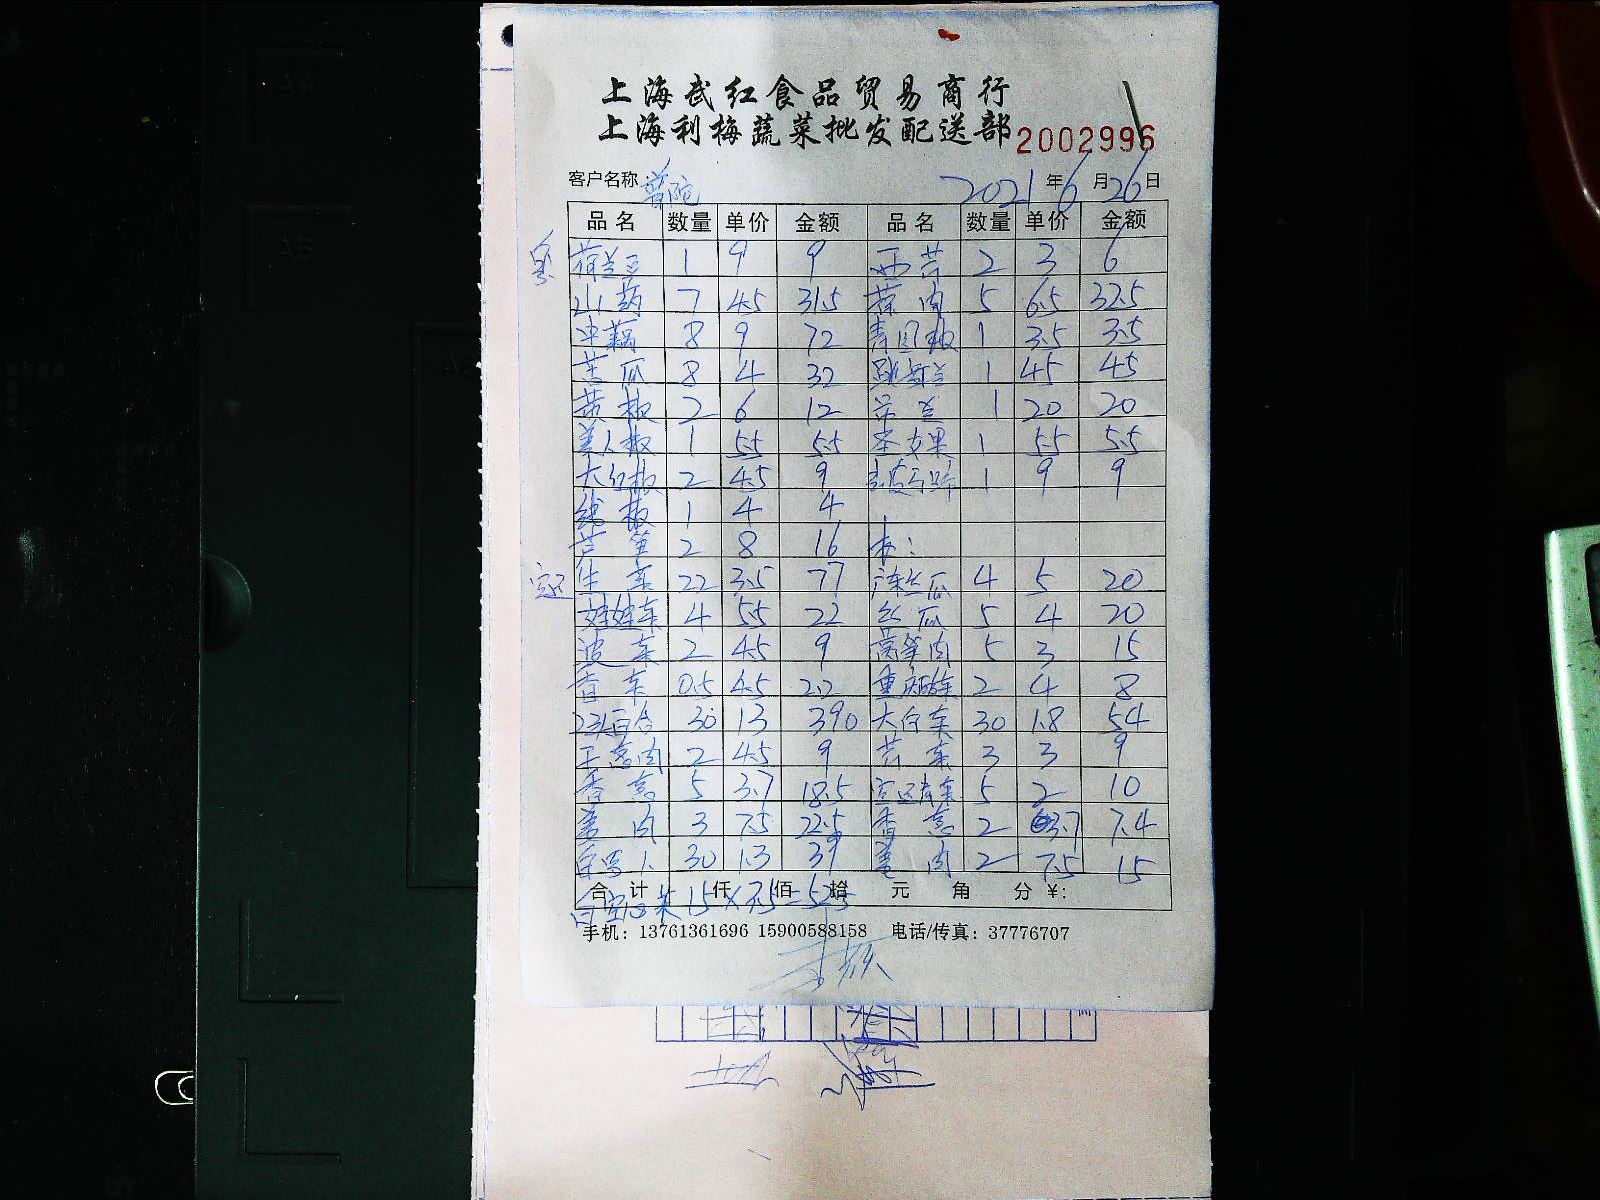 上海武红食品贸易商行
上海利梅蔬菜批发配送部 2002996
客户名称: 普陀 2021年6月26日
品名 数量 单价 金额 品名 数量 单价 金额
荷兰豆 1 9 9 西芹 2 3 6
山药 7 4.5 31.5 蒜肉 5 6.5 32.5
中藕 8 9 72 青园椒 1 3.5 3.5
苦瓜 8 4 32 1 45 45
黄椒 2 6 12 1 20 20
美人椒 1 5.5 5.5 1 5.5 5.5
大红椒 2 4.5 9 去皮马蹄 1 9 9
线椒 1 4 4
芦笋 2 8 16
生菜 22 3.5 77 丝瓜 4 5 20
娃娃菜 4 5.5 22 丝瓜 5 4 20
波菜 2 4.5 9 莴笋肉 5 3 15
香菜 0.5 4.5 2.2 2 4 8
百合 30 13 390 大白菜 30 1.8 54
肉 2 4.5 9 芹菜 3 3 9
香葱 5 3.7 18.5 5 2 10
姜肉 3 7.5 22.5 香葱 2 3.7 7.4
30 1.3 39 姜肉 2 7.5 15
合计 仟 佰 拾 元 角 分 ¥:
白空心菜 15×3.5=52.5
手机: 13761361696 15900588158 电话/传真: 37776707